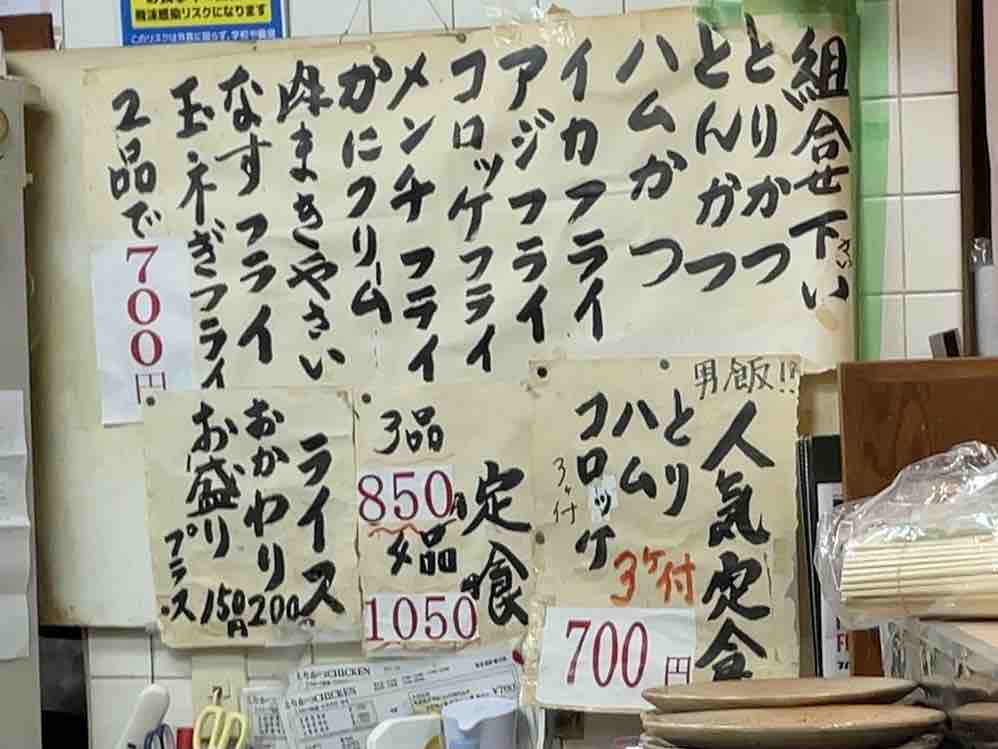 飛沫感染リスクになります
組合せ下さい
とりかつ
とんかつ
ハムかつ
イカフライ
アジフライ
コロッケフライ
メンチフライ
かにクリーム
肉まきやさい
なすフライ
玉ネギフライ
2品で
700円
男飯!!
人気定食
とり
ハム
コロッケ
3ヶ付
3ヶ付
700円
定食
3品
850
4品
1050
ライス
おかわり200
お盛り150円
プラス
CHICKEN
CHICKEN
¥700